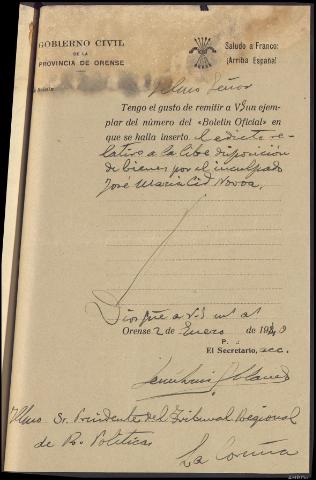 GOBIERNO CIVIL
DE LA
PROVINCIA DE ORENSE
Saludo a Franco:
¡Arriba España!
Ilmo Señor
Tengo el gusto de remitir a VS un ejem-
plar del número del «Boletín Oficial» en
que se halla inserto el edicto re-
lativo a la libe disposición
de bienes por el inculpado
José María Cid Novoa.
Dios gue a V.S.
Orense 2 de Enero de 1940
P.
El Secretario, acc.
Ilmo Sr. Presidente del Tribunal Regional
de R. Politicas
La Coruña